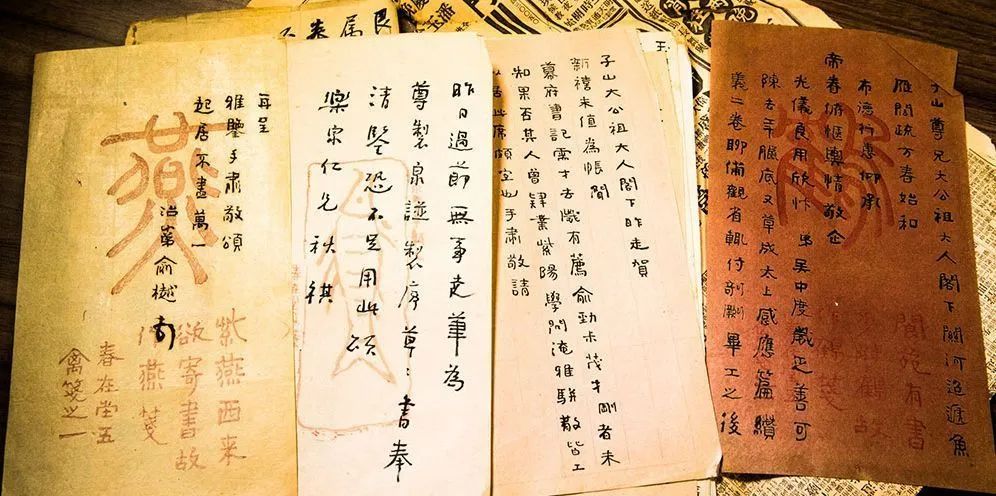 子山尊兄大公祖大人閣下關河迢遞魚
雁闊疏方春始和
布德行惠仰承
帝眷俯愜輿情敬企
光儀良用欣忭弟吳中度歲正善可
陳去年臘底又草成太上感應篇纘
義二卷聊備觀省輒付剞劂畢工之後
閬苑有書
子山大公祖大人閣下昨走賀
新禧未值為悵聞
幕府書記需才去歲有薦俞勁木茂才剛者未
知果否其人曾肄業紫陽學問淹雅駢散皆工
以居此席頗宜也手肅敬請
昨日過節無事走筆為
尊製泉譜製序草〻書奉
清鑒恐不足用此頌
樂宗仁兄秋祺
再呈
雅鑒手肅敬頌
起居不盡萬一
治弟俞樾頓
燕
紫燕西来
欲寄書故
作燕箋
春在堂五
禽箋之一